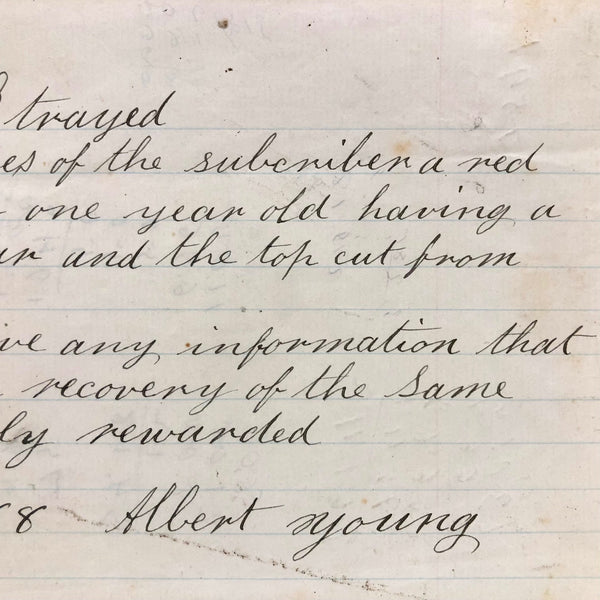 Strayed
es of the subcriber a red
one year old having a
ur and the top cut from
ve any information that
recovery of the same
ly rewarded
8 Albert Young